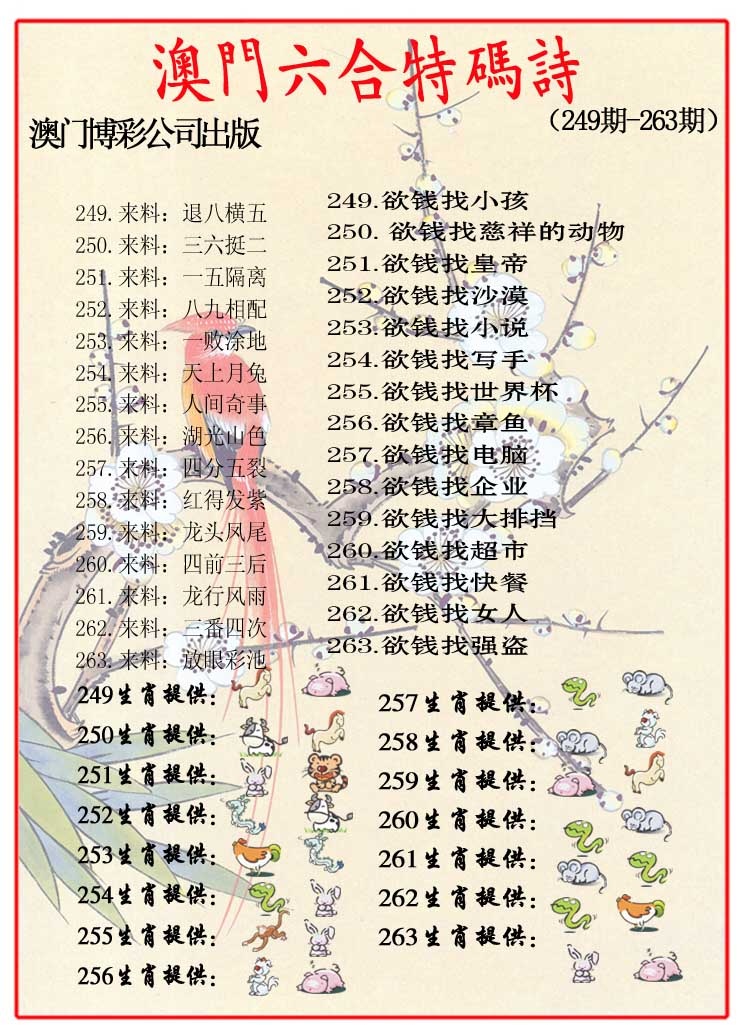 澳門六合特碼詩
澳门博彩公司出版
（249期-263期）
249.来料：退八横五
250.来料：三六挺二
251.来料：一五隔离
252.来料：八九相配
253.来料：一败涂地
254.来料：天上月兔
255.来料：人间奇事
256.来料：湖光山色
257.来料：四分五裂
258.来料：红得发紫
259.来料：龙头风尾
260.来料：四前三后
261.来料：龙行风雨
262.来料：三番四次
263.来料：放眼彩池
249.欲钱找小孩
250. 欲钱找慈祥的动物
251.欲钱找皇帝
252.欲钱找沙漠
253.欲钱找小说
254.欲钱找写手
255.欲钱找世界杯
256.欲钱找章鱼
257.欲钱找电脑
258.欲钱找企业
259.欲钱找大排挡
260.欲钱找超市
261.欲钱找快餐
262.欲钱找女人
263.欲钱找强盗
249生肖提供：
250生肖提供：
251生肖提供：
252生肖提供：
253生肖提供：
254生肖提供：
255生肖提供：
256生肖提供：
257生肖提供：
258生肖提供：
259生肖提供：
260生肖提供：
261生肖提供：
262生肖提供：
263生肖提供：